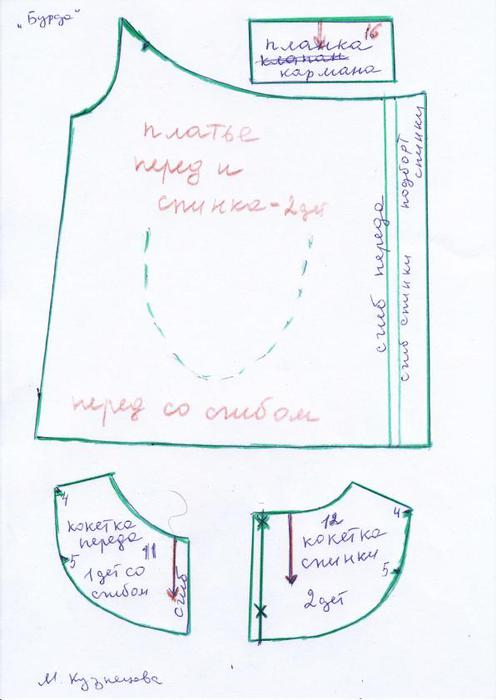 „Бурда"
16
планка
клапан
кармана
платье
перед и
спинка - 2 дет
сгиб переда
сгиб спинки
подборт
спинки
перед со сгибом
4
кокетка
переда
11
5
1 дет со
сгибом
сгиб
12
4
кокетка
спинки
5
2 дет
М. Кузнецова